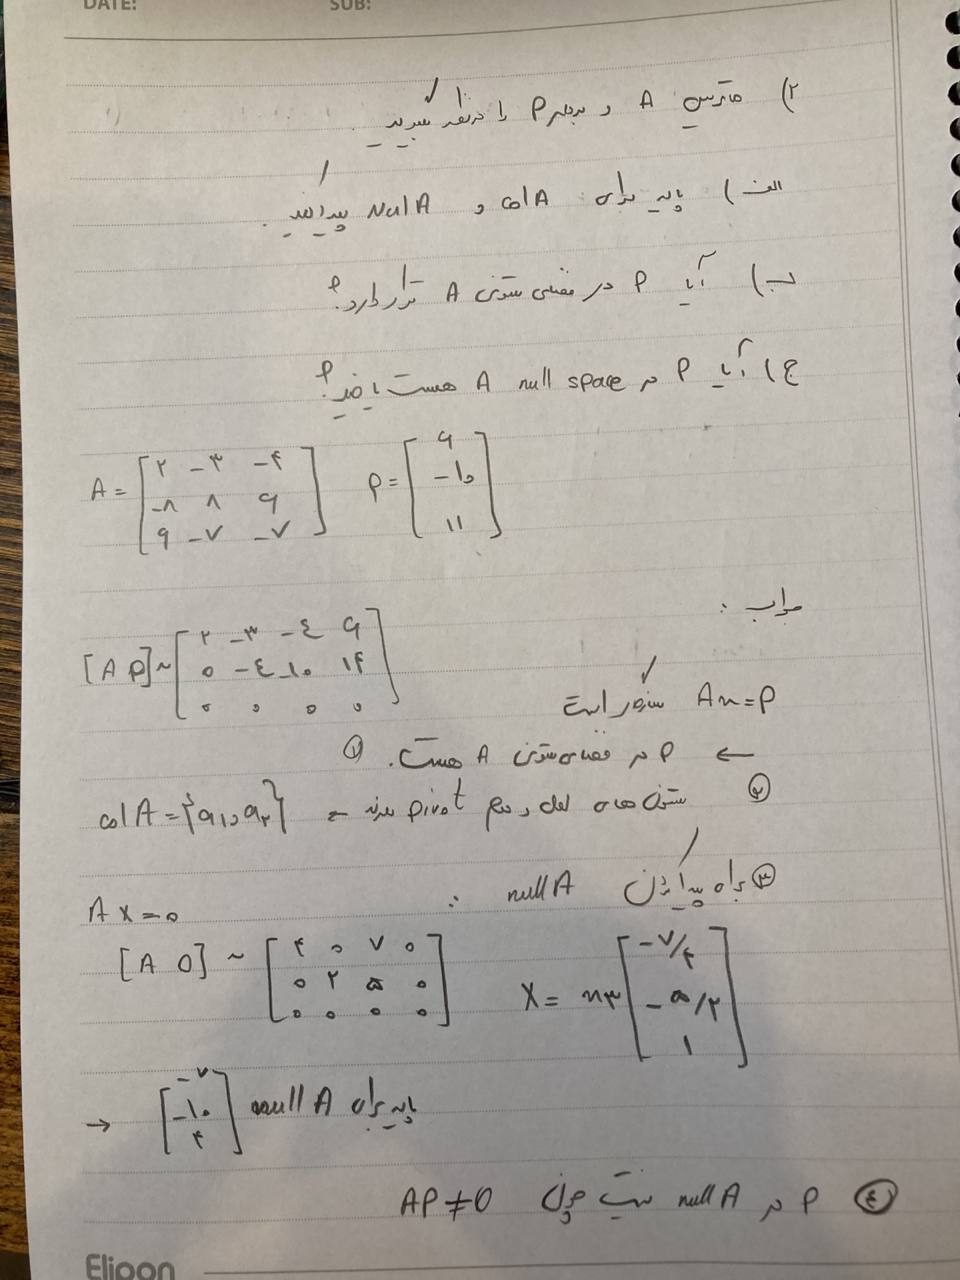 DATE:
SUB:
۲) ماتریس A و بردار P را در نظر بگیرید.
الف) پایه برای colA و NulA پیدا کنید.
ب) آیا P در فضای ستونی A قرار دارد؟
ج) آیا P در null space A هست یا خیر؟
A = [۲ -۳ -۴
-۸ ۸ ۶
۶ -۷ -۷] P = [۶
-۱۰
۱۱]
جواب:
[A P] ~ [۲ -۳ -٤ ۶
۰ -٤ -۱۰ ۱۴
۰ ۰ ۰ ۰]
Ax=P سازگار است
← P در فضای ستونی A هست. ①
② ستون های اول و دوم pivot دارند ← colA = {a۱, a۲}
③ برای پیدا کردن nullA :
AX=0
[A 0] ~ [۴ ۰ ۷ ۰
۰ ۲ ۵ ۰
۰ ۰ ۰ ۰] X = x۳ [-۷/۴
-۵/۲
۱]
→ [-۷
-۱۰
۴] پایه برای null A
④ P در nullA نیست چون AP≠0
Elipon